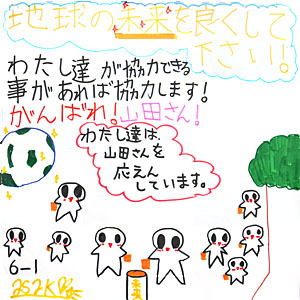 地球の未来を良くして
下さい!。
わたし達が協力できる
事があれば協力します!
がんばれ!山田さん!
わたし達は、
山田さんを
応えん
しています。
6-1
未来